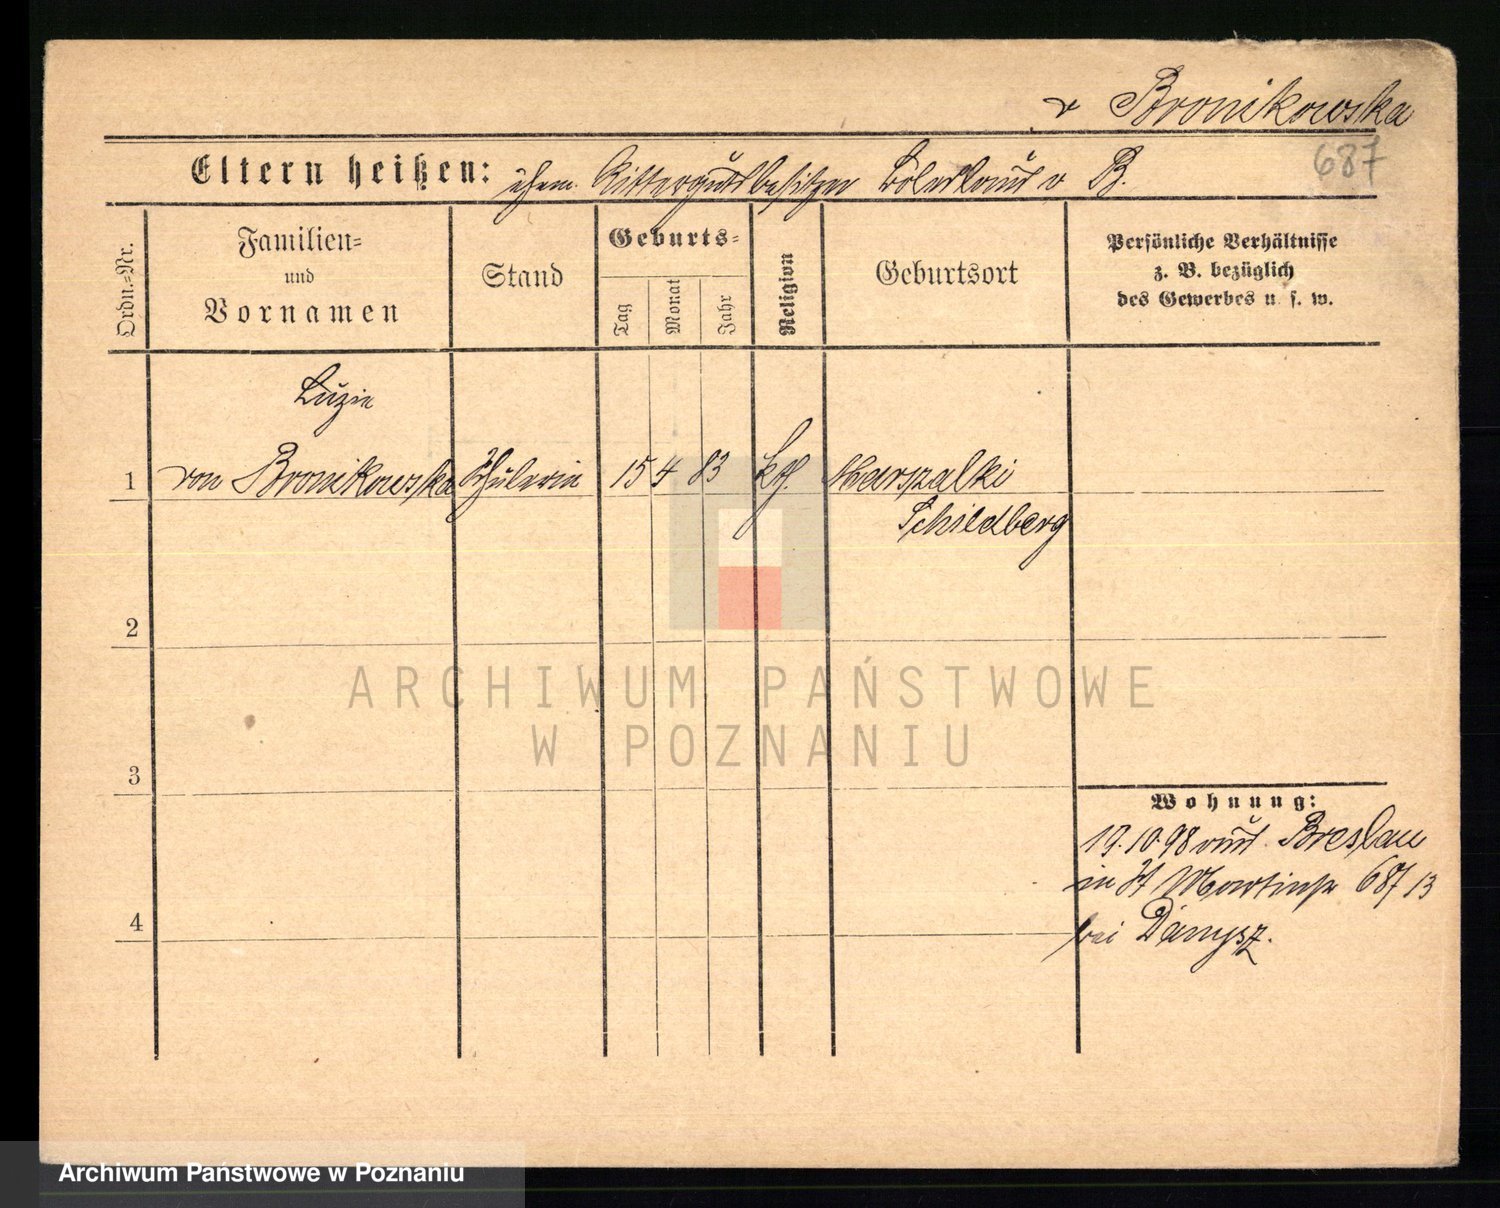 v Bronikowska
687
Eltern heißen: ehem. Rittergutsbesitzer Boleslaus v B.
Ordn.-Nr.
Familien-
und
Vornamen
Stand
Geburts-
Tag
Monat
Jahr
Religion
Geburtsort
Persönliche Verhältnisse
z. B. bezüglich
des Gewerbes u. s. w.
Luzie
1 von Bronikowska Schülerin 15 4 83 kth. Marszalki
Schildberg
2
3
4
Wohnung:
19.10.98 aus Breslau
in St Martinstr 68/13
bei Danysz.
ARCHIWUM PAŃSTWOWE
W POZNANIU
Archiwum Państwowe w Poznaniu